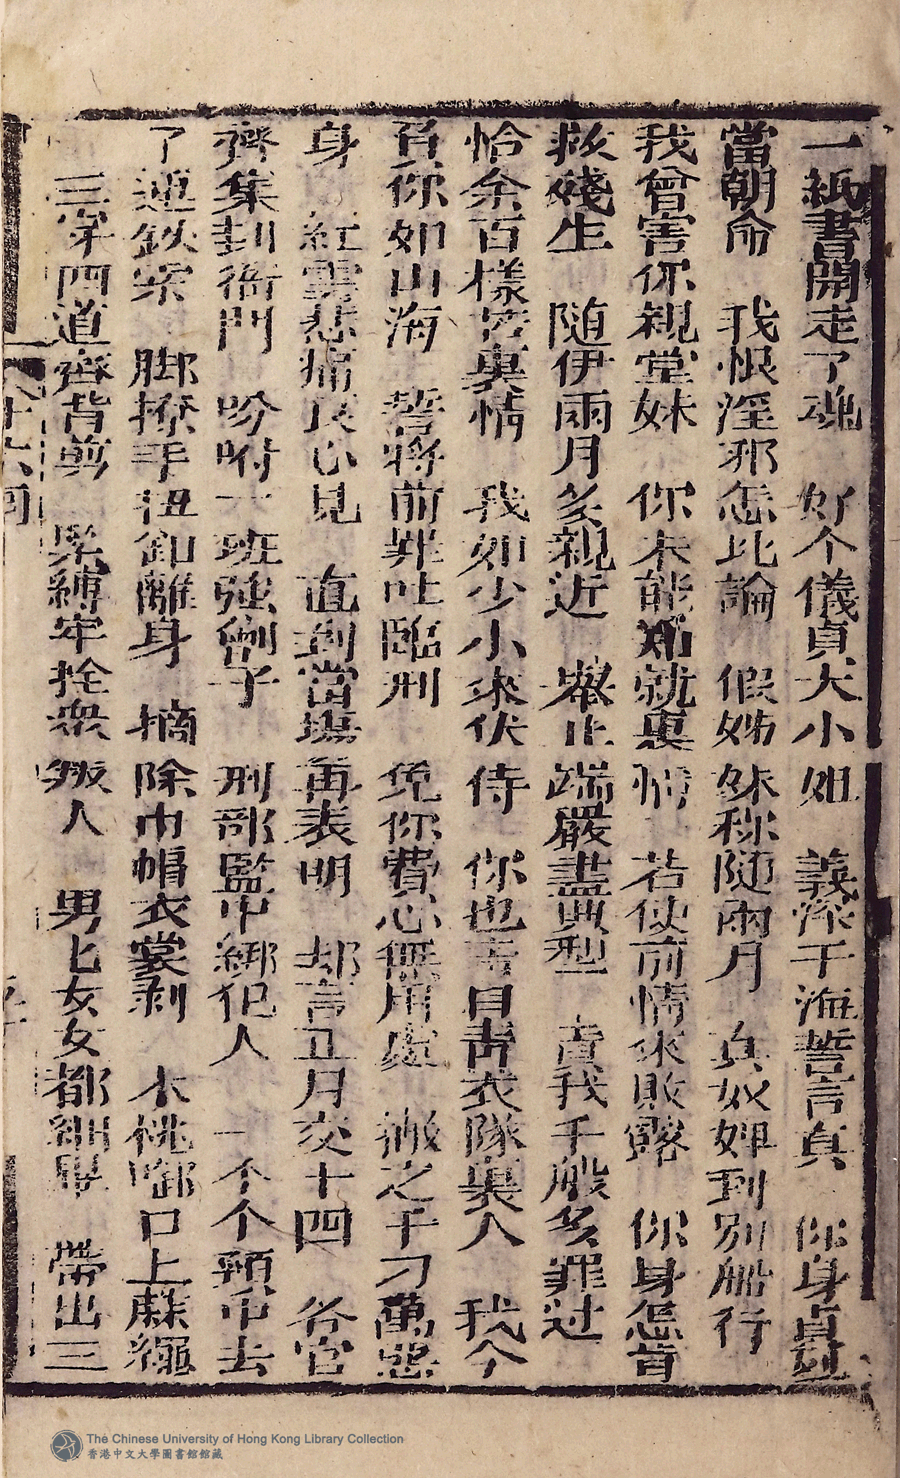 一紙書開走了魂　好个儀貞大小姐　義深千海誓言真　你身貞烈
當朝命　我恨淫邪怎比論　假姊妹称隨兩月　真奴婢到別船行
我曾害你親堂妹　你未能知就裏情　若使前情來敗露　你身怎肯
救殘生　隨伊兩月多親近　舉止端嚴盡典型　責我千般多罪过
恰余百樣苦裏情　我如少小來伏侍　你也青目青衣隊裏人　我今
負你如山海　誓將前罪吐臨刑　免你費心無用處　撇之千刁萬惡
身　紅雲悲痛良心見　直到當塲再表明　却言正月交十四　各官
齊集封衙門　吩咐一班強劊子　刑部監中綁犯人　一个个頸巾去
了連欽案　脚撩手扭卸離身　摘除巾帽衣裳剥　木桃啣口上蔴繩
三字四道齊背剪　緊縛牢拴眾叛人　男匕女女都綑畢　帶出三
六十六囘
The Chinese University of Hong Kong Library Collection
香港中文大學圖書館館藏